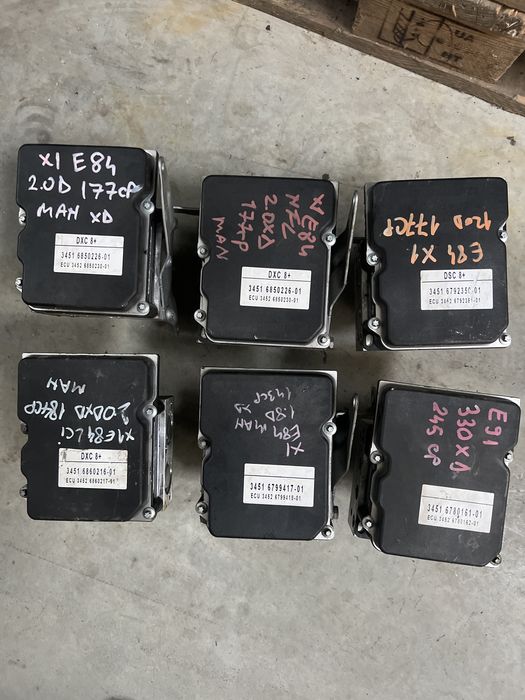 X1 E84
2.0D 177CP
MAN XD
DXC 8+
3451 6850226-01
ECU 3452 6850230-01
X1 E84
2.0XD
177CP
MAN
DXC 8+
3451 6850226-01
ECU 3452 6850230-01
177CP
E84 X1
DSC 8+
3451 6792350-01
ECU 3452 6792351-01
MAN
2.0DXD 184CP
X1 E84 LCi
DXC 8+
3451 6860216-01
ECU 3452 6860217-01
143CP
1.8D XD
E84 MAN
X1
3451 6799417-01
ECU 3452 6799418-01
E91
330XD
245CP
3451 6780161-01
ECU 3452 6780162-01